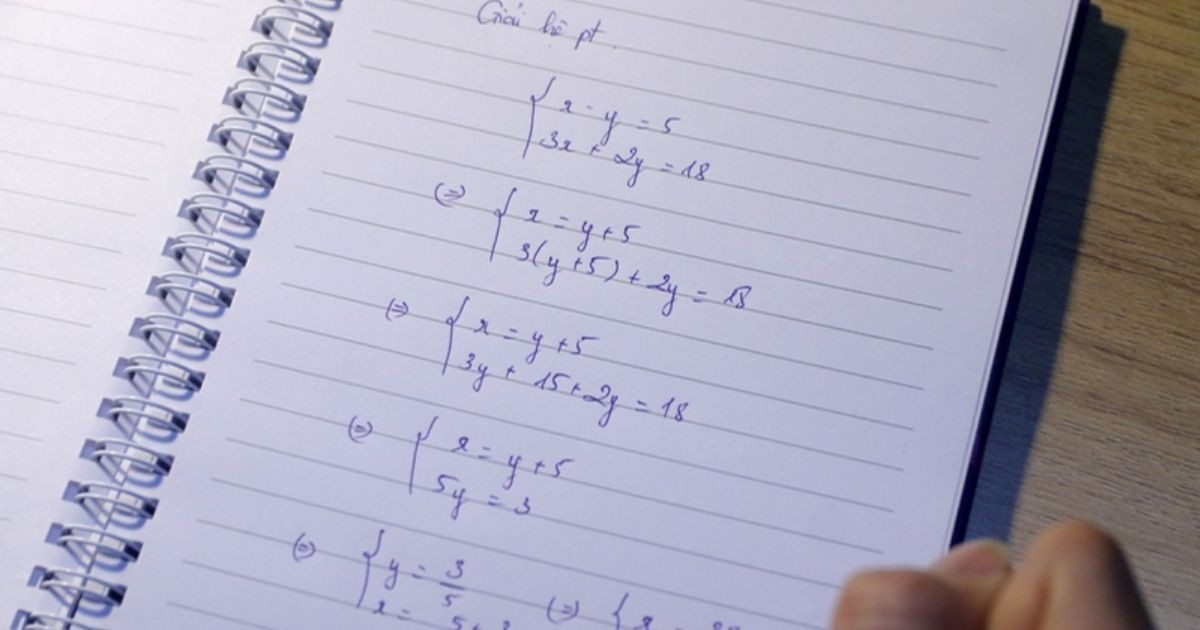 Giải hệ pt.
x - y = 5
3x + 2y = 18
(=) x = y + 5
3(y + 5) + 2y = 18
(=) x = y + 5
3y + 15 + 2y = 18
(=) x = y + 5
5y = 3
(=) y = 3/5 (=) x =
x = 5 +